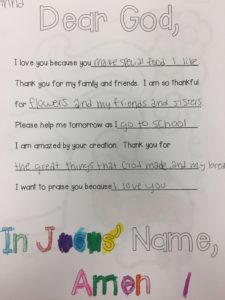 Dear God,
I love you because you make special food I like
Thank you for my family and friends. I am so thankful
for flowers and my friends and sisters
Please help me tomorrow as I go to school
I am amazed by your creation. Thank you for
the great things that God made and my
I want to praise you because I love you
In Jesus' Name,
Amen